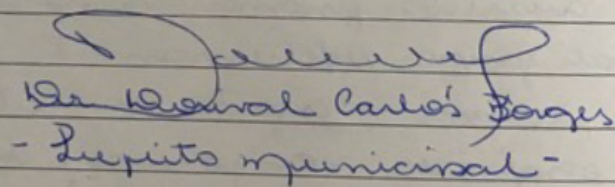 Dr Dorival Carlos Borges
- Prefeito Municipal -